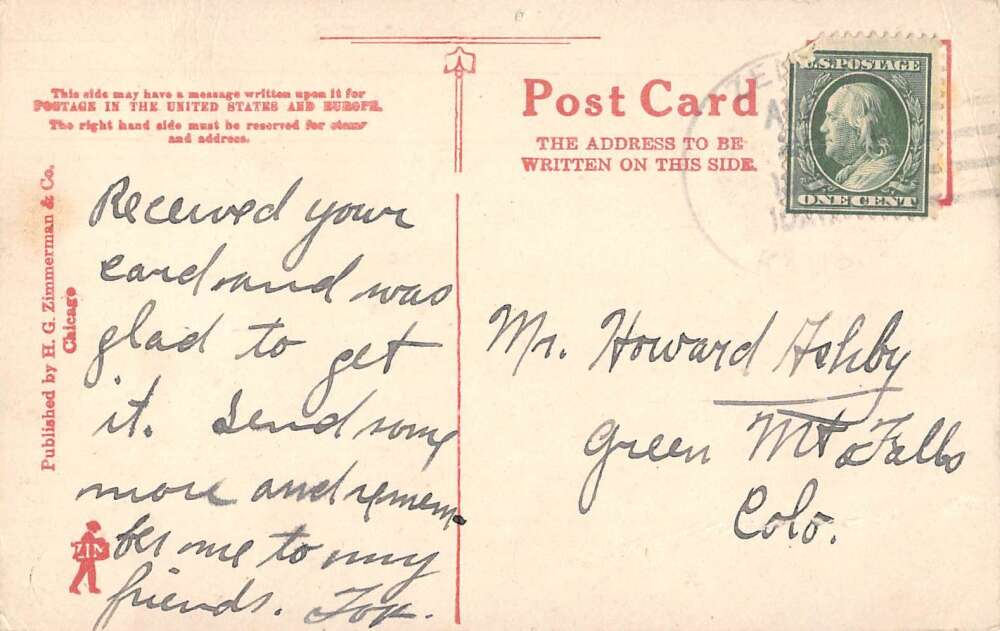 This side may have a message written upon it for
POSTAGE IN THE UNITED STATES AND EUROPE.
The right hand side must be reserved for stamp
and address.
Published by H. G. Zimmerman & Co.
Chicago
Received your
card and was
glad to get
it. Send some
more and remem-
ber me to my
friends.
ZIM
Post Card
THE ADDRESS TO BE
WRITTEN ON THIS SIDE.
U.S. POSTAGE
ONE CENT
Mr. Howard Ashby
Green Mt. Falls
Colo.